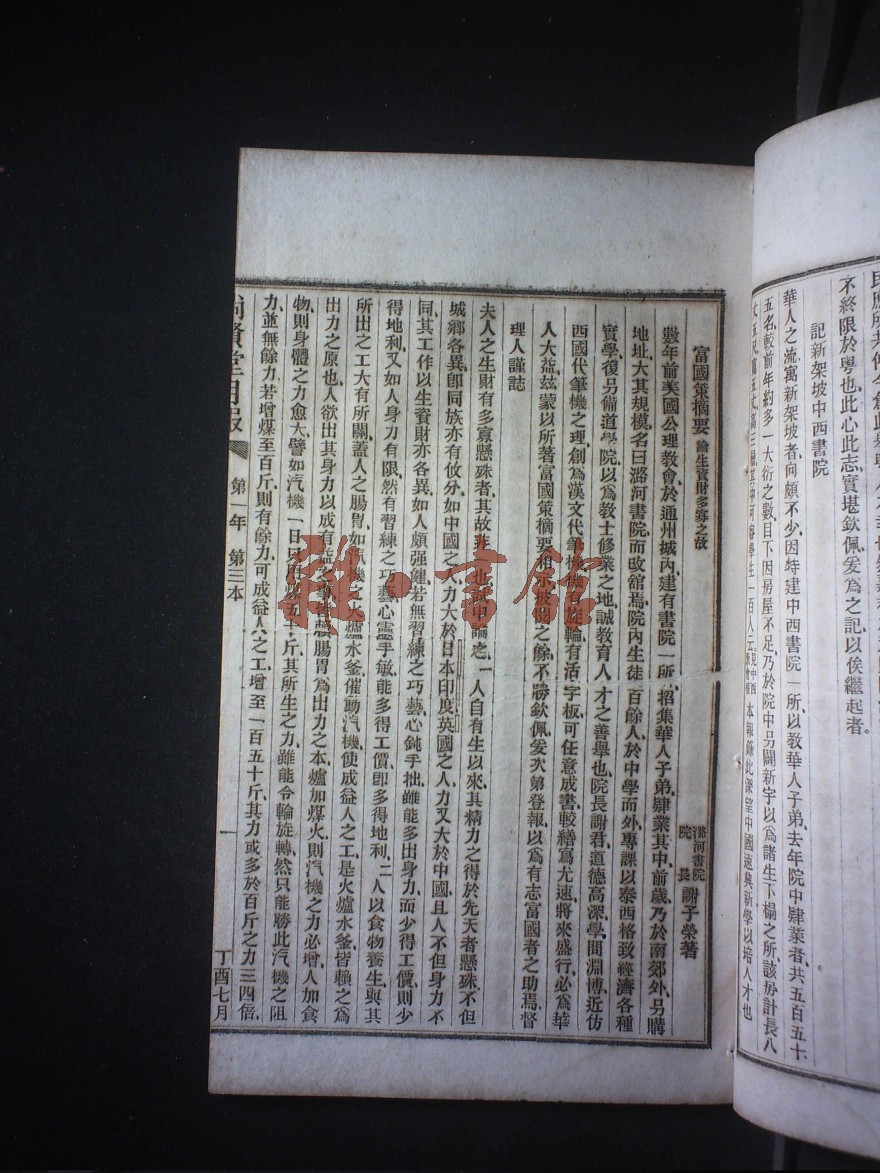 民
不終限於粤也此心此志實堪欽佩爰為之記以俟繼起者。
記新架坡中西書院
華人之流寓新架坡者、向頗不少、因特建中西書院一所、以教華人子弟、去年院中肄業者、共五百五十
五名、較前年約多一大衍之數、目下因房屋不足、乃於院中另闢新宇、以為諸生下榻之所、該房計長八
本報錄此深望中國速興新學以培人才也
富國策摘要 論生貲財多寡之故
潞河書院院長 謝子榮著
數年前美國公理教會、於通州城內、建有書院一所、招集華人子弟、肄業其中、前歲乃於南郊外、另購
地址、大其規模、名曰潞河書院、而改館焉、院內生徒一百餘人、於中學而外、專課以泰西格致經濟各種
實學、復另備道學院、以為教士修業之地、誠教育人才之善舉也、院長謝君、道德高深、學問淵博、近仿
西國代筆機之理、創為漢文代筆機、機有旋輪、有活字板、可任意成書、較繕寫尤速、將來盛行、必為華
人大益、茲蒙以所著富國策摘要相示、披閱之餘、不勝欽佩、爰次第登報、以為有志富國者之助焉、督
理人謹誌
夫人之生財有多寡懸殊者、其故非一也、試申論之、一人自有生以來、其精力之得於先天者懸殊、不但
城鄉各異、即同族亦有攸分、如中國之人力大於日本印度、英國之人力又大於中國、且人不但身力不
同、其工作以生資財亦各異、如人頗强健、若無習練之巧藝、心鈍手拙、雖能多出身力、而少得工價、則少
得地利、又如人身力有限、然有習練之巧藝、心靈手敏、能多得工價、即多得地利、二人以食物養生、與其
所出之工大有所關、蓋人之腸胃、如汽機之火爐水釜、催動汽機、使成益人之工、是火爐水釜、皆賴之為
出力之原也、人欲出其身力、以成有益之 腸胃為出力之本、爐加煤火、則汽機之力必增、人加食
物、則身體之力愈大、譬如汽機一日只用煤五十斤、其所生之力、雖能令輪旋轉、然只能勝此汽機之阻
力、並無餘力、若增煤至百斤、則有餘力、可成益人之工、增至一百五十斤、其力或多於百斤之力三四倍、
尚賢堂月報 第一年 第三本 一 丁酉七月
雅·書館